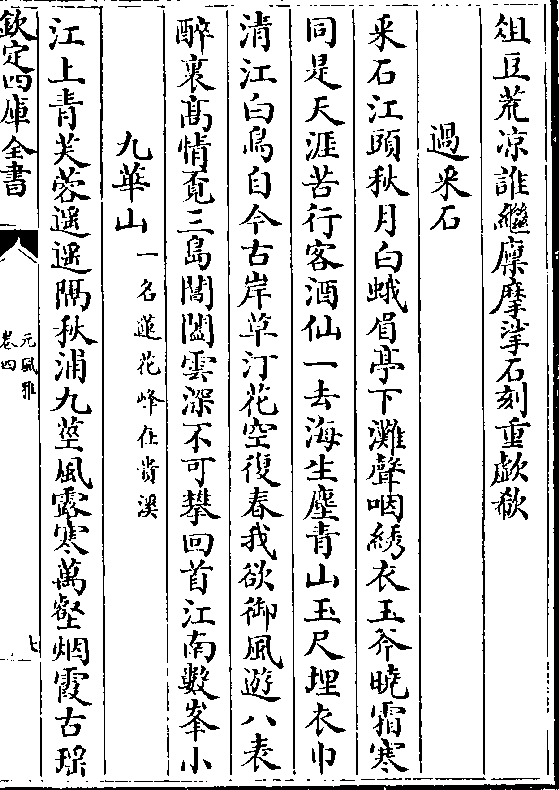 俎豆荒凉誰繼廩摩挲石刻重歔欷
過采石
采石江頭秋月白蛾眉亭下灘聲咽綉衣玉斧曉霜寒
同是天涯苦行客酒仙一去海生塵青山玉尺埋衣巾
清江白鳥自今古岸草汀花空復春我欲御風遊八表
醉裏髙情覔三島閶闔雲深不可攀回首江南數峯小
九華山一名蓮花峰在貴溪
江上青芙蓉遥遥隔秋浦九莖風露寒萬壑烟霞古瑶
欽定四庫全書
元風雅
卷四
七